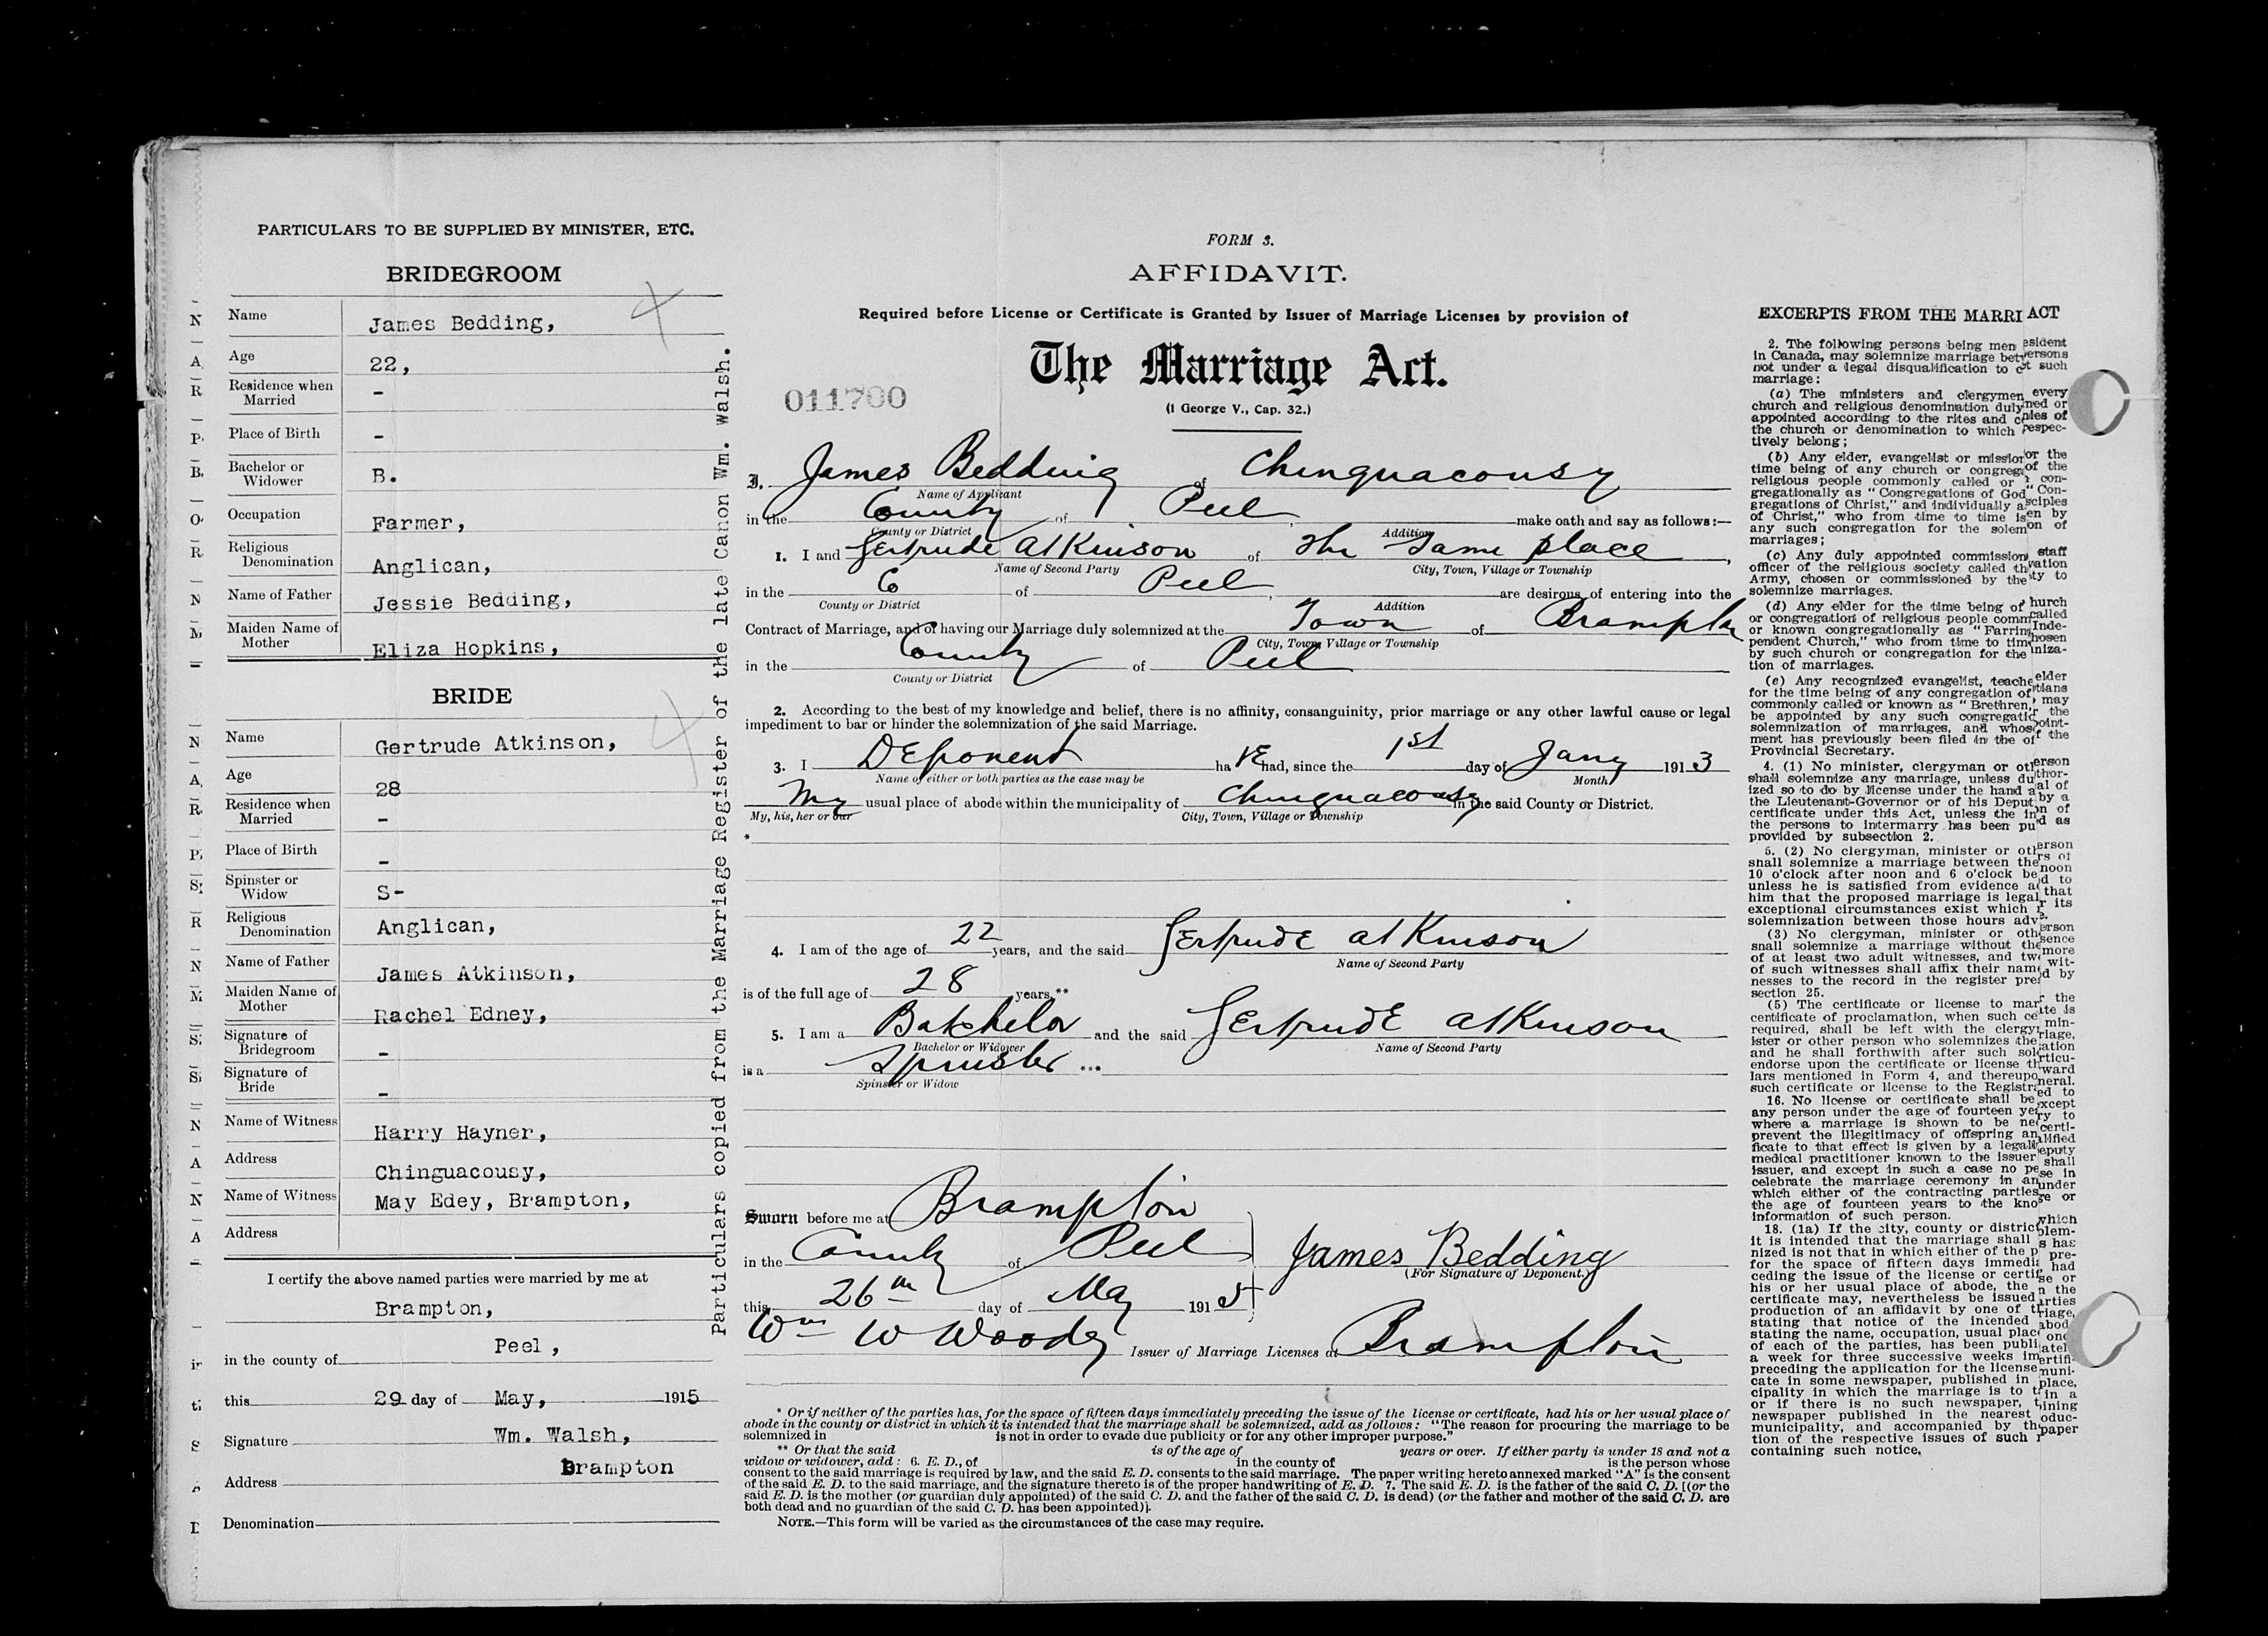 PARTICULARS TO BE SUPPLIED BY MINISTER, ETC.
BRIDEGROOM
Name James Bedding,
Age 22,
Residence when Married -
Place of Birth -
Bachelor or Widower B.
Occupation Farmer,
Religious Denomination Anglican,
Name of Father Jessie Bedding,
Maiden Name of Mother Eliza Hopkins,
BRIDE
Name Gertrude Atkinson,
Age 28
Residence when Married -
Place of Birth -
Spinster or Widow S-
Religious Denomination Anglican,
Name of Father James Atkinson,
Maiden Name of Mother Rachel Edney,
Signature of Bridegroom -
Signature of Bride -
Name of Witness Harry Hayner,
Address Chinguacousy,
Name of Witness May Edey, Brampton,
Address
I certify the above named parties were married by me at
Brampton,
in the county of Peel,
this 29 day of May, 1915
Signature Wm. Walsh,
Address Brampton
Denomination
Particulars copied from the Marriage Register of the late Canon Wm. Walsh.
FORM 3.
AFFIDAVIT.
Required before License or Certificate is Granted by Issuer of Marriage Licenses by provision of
The Marriage Act.
011700
(1 George V., Cap. 32.)
I. James Bedding of Chinguacousy
Name of Applicant
in the County of Peel, make oath and say as follows:—
County or District Addition
1. I and Gertrude Atkinson of The Same place,
Name of Second Party City, Town, Village or Township
in the C of Peel, are desirous of entering into the
County or District Addition
Contract of Marriage, and of having our Marriage duly solemnized at the Town of Brampton
City, Town, Village or Township
in the County of Peel
County or District
2. According to the best of my knowledge and belief, there is no affinity, consanguinity, prior marriage or any other lawful cause or legal
impediment to bar or hinder the solemnization of the said Marriage.
3. I Deponent ha ve had, since the 1st day of Jany 1913
Name of either or both parties as the case may be Month
My usual place of abode within the municipality of Chinguacousy in the said County or District.
My, his, her or our City, Town, Village or Township
*
4. I am of the age of 22 years, and the said Gertrude Atkinson
Name of Second Party
is of the full age of 28 years.**
5. I am a Batchelor and the said Gertrude Atkinson
Bachelor or Widower Name of Second Party
is a Spinster ***
Spinster or Widow
Sworn before me at Brampton
in the County of Peel
James Bedding
(For Signature of Deponent.)
this 26th day of May 1915
Wm W Woods Issuer of Marriage Licenses at Brampton
* Or if neither of the parties has, for the space of fifteen days immediately preceding the issue of the license or certificate, had his or her usual place of
abode in the county or district in which it is intended that the marriage shall be solemnized, add as follows: "The reason for procuring the marriage to be
solemnized in is not in order to evade due publicity or for any other improper purpose."
** Or that the said is of the age of years or over. If either party is under 18 and not a
widow or widower, add: 6. E. D., of in the county of is the person whose
consent to the said marriage is required by law, and the said E. D. consents to the said marriage. The paper writing hereto annexed marked "A" is the consent
of the said E. D. to the said marriage, and the signature thereto is of the proper handwriting of E. D. 7. The said E. D. is the father of the said C. D. [(or the
said E. D. is the mother (or guardian duly appointed) of the said C. D. and the father of the said C. D. is dead) (or the father and mother of the said C. D. are
both dead and no guardian of the said C. D. has been appointed)].
NOTE.—This form will be varied as the circumstances of the case may require.
EXCERPTS FROM THE MARRI ACT
2. The following persons being men
in Canada, may solemnize marriage
not under a legal disqualification to
marriage:
(a) The ministers and clergymen
church and religious denomination duly
appointed according to the rites and
the church or denomination to which
tively belong;
(b) Any elder, evangelist or
time being of any church or
religious people commonly called or
gregationally as "Congregations of God"
gregations of Christ," and individually
of Christ," who from time to time
any such congregation for the
marriages;
(c) Any duly appointed
officer of the religious society called
Army, chosen or commissioned by the
solemnize marriages.
(d) Any elder for the time being of
or congregation of religious people
or known congregationally as
pendent Church," who from time to
by such church or congregation for the
tion of marriages.
(e) Any recognized evangelist,
for the time being of any congregation of
commonly called or known as "Brethren,"
be appointed by any such
solemnization of marriages, and
ment has previously been filed in the
Provincial Secretary.
4. (1) No minister, clergyman or
shall solemnize any marriage, unless
ized so to do by license under the hand
the Lieutenant-Governor or of his
certificate under this Act, unless the
the persons to intermarry has been
provided by subsection 2.
5. (2) No clergyman, minister or
shall solemnize a marriage between the
10 o'clock after noon and 6 o'clock
unless he is satisfied from evidence
him that the proposed marriage is legal
exceptional circumstances exist which
solemnization between those hours
(3) No clergyman, minister or
shall solemnize a marriage without
of at least two adult witnesses, and
of such witnesses shall affix their
nesses to the record in the register
section 25.
(5) The certificate or license to
certificate of proclamation, when such
required, shall be left with the
ister or other person who solemnizes
and he shall forthwith after such
endorse upon the certificate or license
lars mentioned in Form 4, and
such certificate or license to the
16. No license or certificate shall be
any person under the age of fourteen
where a marriage is shown to be
prevent the illegitimacy of offspring
ficate to that effect is given by a
medical practitioner known to the issuer
issuer, and except in such a case no
celebrate the marriage ceremony in
which either of the contracting parties
the age of fourteen years to the
information of such person.
18. (1a) If the city, county or district
it is intended that the marriage shall
nized is not that in which either of the
for the space of fifteen days
ceding the issue of the license or
his or her usual place of abode, the
certificate may, nevertheless be issued
production of an affidavit by one of
stating that notice of the intended
stating the name, occupation, usual
of each of the parties, has been
a week for three successive weeks
preceding the application for the license
cate in some newspaper, published in
cipality in which the marriage is to
or if there is no such newspaper,
newspaper published in the nearest
municipality, and accompanied by
tion of the respective issues of such
containing such notice.